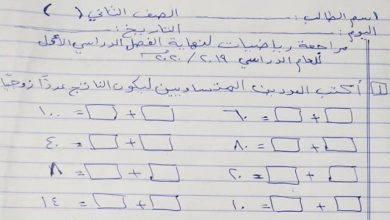 اسم الطالب: الصف الثاني ( )
اليوم: التاريخ:
مراجعة رياضيات لنهاية الفصل الدراسي الأول
للعام الدراسي ٢٠١٩/٢٠٢٠
١ أكتب العددين المتساويين ليكون الناتج عددًا زوجيًا
□ + □ = ٦٠ □ + □ = ١٠٠
□ + □ = ٨٠ □ + □ = ٤٠
□ + □ = ٢٠ □ + □ = ٨
□ + □ = ١٠ □ + □ = ١٤